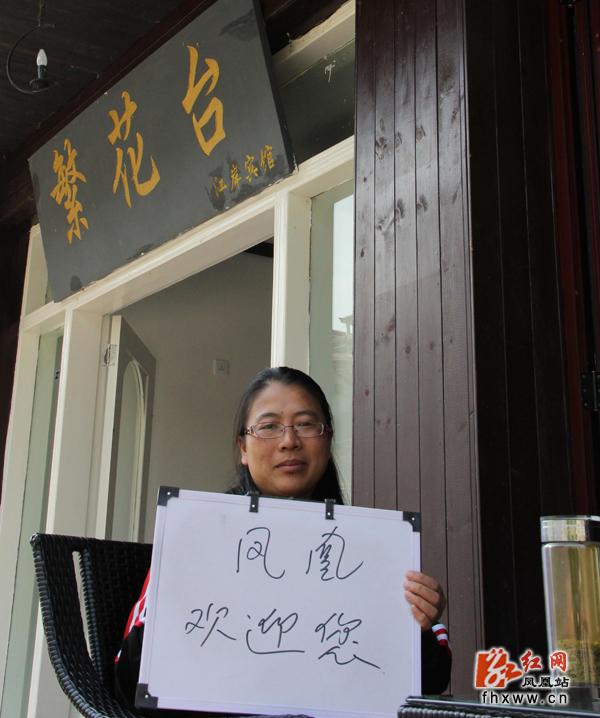 繁花台
江岸宾馆
凤凰
欢迎您
红网
凤凰站
fhxww.cn